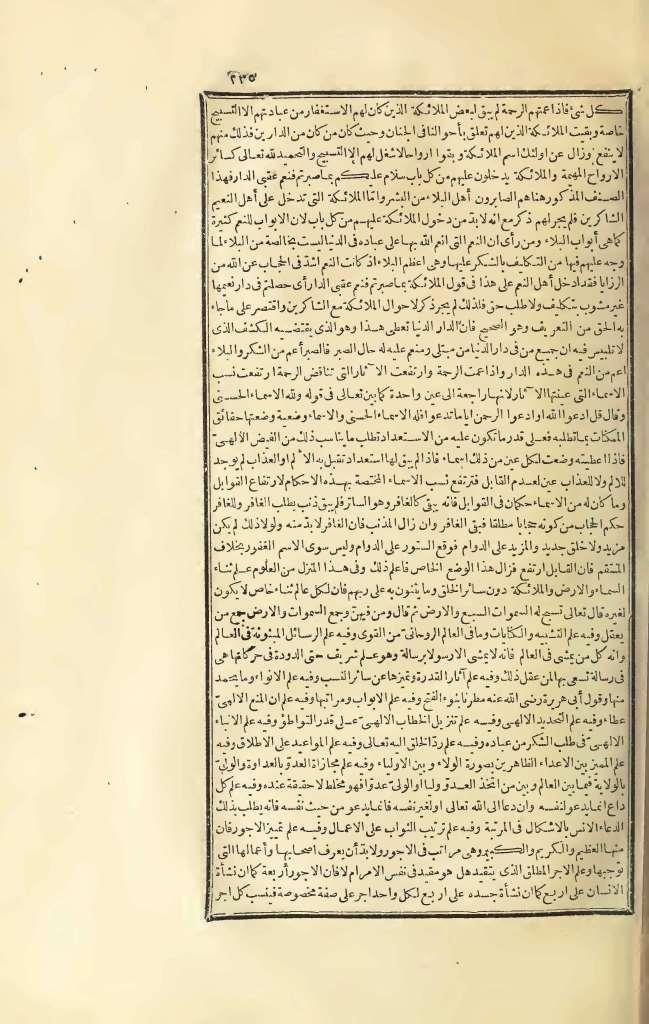 ٢٣٥
كل شئ فاذا عمتهم الرحمة لم يبق لبعض الملائكة الذين كان لهم الاستغفار من عبادتهم الا التسبيح
خاصة وبقيت الملائكة الذين لهم تعلق بأحوالنا فى الجنان وحيث كان من كان من الدارين فذلك منهم
لا ينفع وزال عن اولئك اسم الملائكة وبقوا ارواحا لاشغل لهم الا التسبيح والتحميد لله تعالى كسائر
الارواح المهيمة والملائكة يدخلون عليهم من كل باب سلام عليكم بما صبرتم فنعم عقبى الدار فهذا
الصنف المذكور هنا هم الصابرون أهل البلاء من البشر واما الملائكة التى تدخل على أهل النعيم
الشاكرين فلم يجر لهم ذكر مع انه لا بد من دخول الملائكة عليهم من كل باب لان الابواب للنعم كثيرة
كما هى أبواب البلاء ومن رأى ان النعم التى انعم الله بها على عباده فى الدنيا ليست بخالصة من البلاء لما
وجه عليهم فيها من التكليف بالشكر عليها وهى اعظم البلاء اذ كانت النعم اشد فى الحجاب عن الله من
الرزايا فقد ادخل أهل النعم على هذا فى قول الملائكة بما صبرتم فنعم عقبى الدار أى حصلتم فى دار نعيمها
غير مشوب بتكليف ولا طلب حق فلذلك لم يجر ذكر لاحوال الملائكة مع الشاكرين واقتصر على ما جاء
به الحق من التعريف وهو الصحيح فان الدار الدنيا تعطى هذا وهو الذى يقتضيه الكشف الذى
لا تلبيس فيه ان جميع من فى دار الدنيا من مبتلى ومنعم عليه له حال الصبر فالصبر أعم من الشكر والبلاء
اعم من النعم فى هذه الدار واذا عمت الرحمة وارتفعت الآثار التى تناقض الرحمة ارتفعت نسب
الاسماء التى عينتها الآثار لانها راجعة الى عين واحدة كما بين تعالى فى قوله ولله الاسماء الحسنى
وقال قل ادعوا الله او ادعوا الرحمن ايا ما تدعوا فله الاسماء الحسنى والاسماء وضعية وضعتها حقائق
الممكنات بما تطلبه فعلى قدر ما تكون عليه من الاستعداد تطلب ما يناسب ذلك من الفيض الالهى
فاذا اعطيته وضعت لكل عين من ذلك اسماء فاذا لم يبق لها استعداد تقبل به الالم او العذاب لم يوجد
للالم ولا للعذاب عين لعدم القابل فترتفع نسب الاسماء المختصة بهذه الاحكام لارتفاع القوابل
وما كان له من الاسماء حكمان فى القوابل فانه يبقى كالغافر وهو الساتر فلم يبق ذنب يطلب الغافر وللغافر
حكم الحجاب من كونه حجابا مطلقا فبقى الغافر وان زال المذنب فان الغافر لا بد منه ولولا ذلك لم يكن
مزيد ولا خلق جديد والمزيد على الدوام فوقع الستور على الدوام وليس سوى الاسم الغفور بخلاف
المنتقم فان القابل ارتفع فزال هذا الوضع الخاص فاعلم ذلك وفى هذا المنزل من العلوم علم ثناء
السماء والارض والملائكة دون سائر الخلق وما يثنون به على ربهم فان لكل عالم ثناء خاص لا يكون
لغيره قال تعالى تسبح له السموات السبع والارض ثم قال ومن فيهن وجمع السموات والارض جمع من
يعقل وفيه علم التشبيه والكتابات وما فى العالم الروحانى من القوى وفيه علم الرسائل المبثوثة فى العالم
وانه كل من يمشى فى العالم فانه لا يمشى الا رسولا برسالة وهو علم شريف حتى الدودة فى حركاتها هى
فى رسالة تسعى بها لمن عقل ذلك وفيه علم آثار القدرة وتميزها عن سائر النسب وفيه علم الانواء وما يحمد
منها وقول أبى هريرة رضى الله عنه مطرنا بنوء الفتح وفيه علم الابواب ومراتبها وفيه علم ان المنع الالهى
عطاء وفيه علم التحديد الالهى وفيه علم تنزيل الخطاب الالهى على قدر التواطؤ وفيه علم الانباء
الالهى فى طلب الشكر من عباده وفيه علم رد الخلق اليه تعالى وفيه علم المواعيد على الاطلاق وفيه
علم المميز بين الاعداء الظاهرين بصورة الولاء وبين الاولياء وفيه علم مجازاة العدو بالعداوة والولى
بالولاية فيما بين العالم وبين من اتخذ العدو وليا والولى عدوا فهو مخلط لا حقيقة عنده وفيه علم كل
داع انما يدعو لنفسه وان دعا الى الله تعالى او لغير نفسه فانما يدعو من حيث نفسه فانه يطلب بذلك
الدعاء الانس بالاشكال فى المرتبة وفيه علم ترتيب الثواب على الاعمال وفيه علم تمييز الاجور فان
منها العظيم والكريم والكبير وهى مراتب فى الاجور ولا بد أن يعرف اصحابها وأعمالها التى
توجبها وعلم الاجر المطلق الذى يتقيد هل هو مقيد فى نفس الامر ام لا فان الاجور أربعة كما ان نشأة
الانسان على اربع كما ان نشأة جسده على اربع لكل واحد اجر على صفة مخصوصة فينسب كل اجر